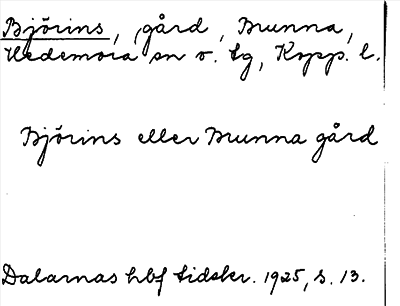 Björins, gård, Brunna,
Hedemora sn o. tg, Kopp. l.
Björins eller Brunna gård
Dalarnas hbf tidskr. 1925, s. 13.